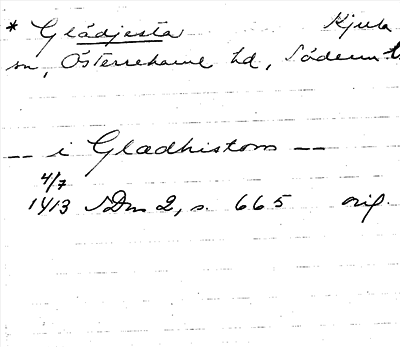 * Glädjesta Kjula
sn, Österrekarne hd, Söderml.
-- i Gladhistom --
4/7
1413 SDns 2, s. 665 orig.